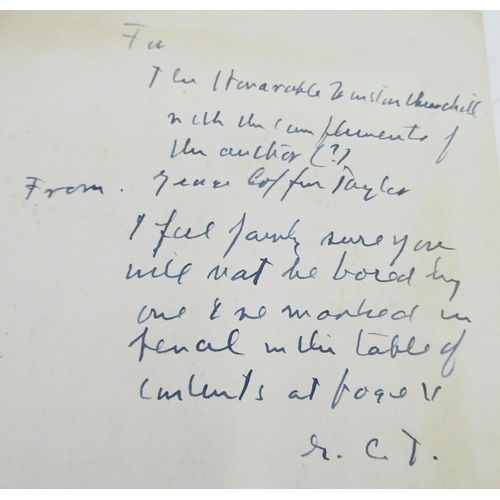 To
The Honorable Winston Churchill
with the compliments of
the author (?)
From. Coffin Taylor
I feel fairly sure you
will not be bored by
one I've marked in
pencil in the table of
contents at page V
C. T.